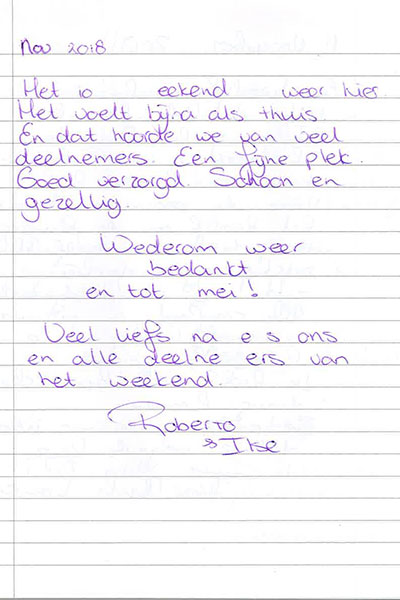 Nov 2018
Het 10 eekend weer hier.
Het voelt bijna als thuis.
En dat hoorde we van veel
deelnemers. Een fijne plek.
Goed verzorgd. Schoon en
gezellig.
Wederom weer
bedankt
en tot mei!
Veel liefs na e s ons
en alle deelne ers van
het weekend.
Roberto
& Ilse